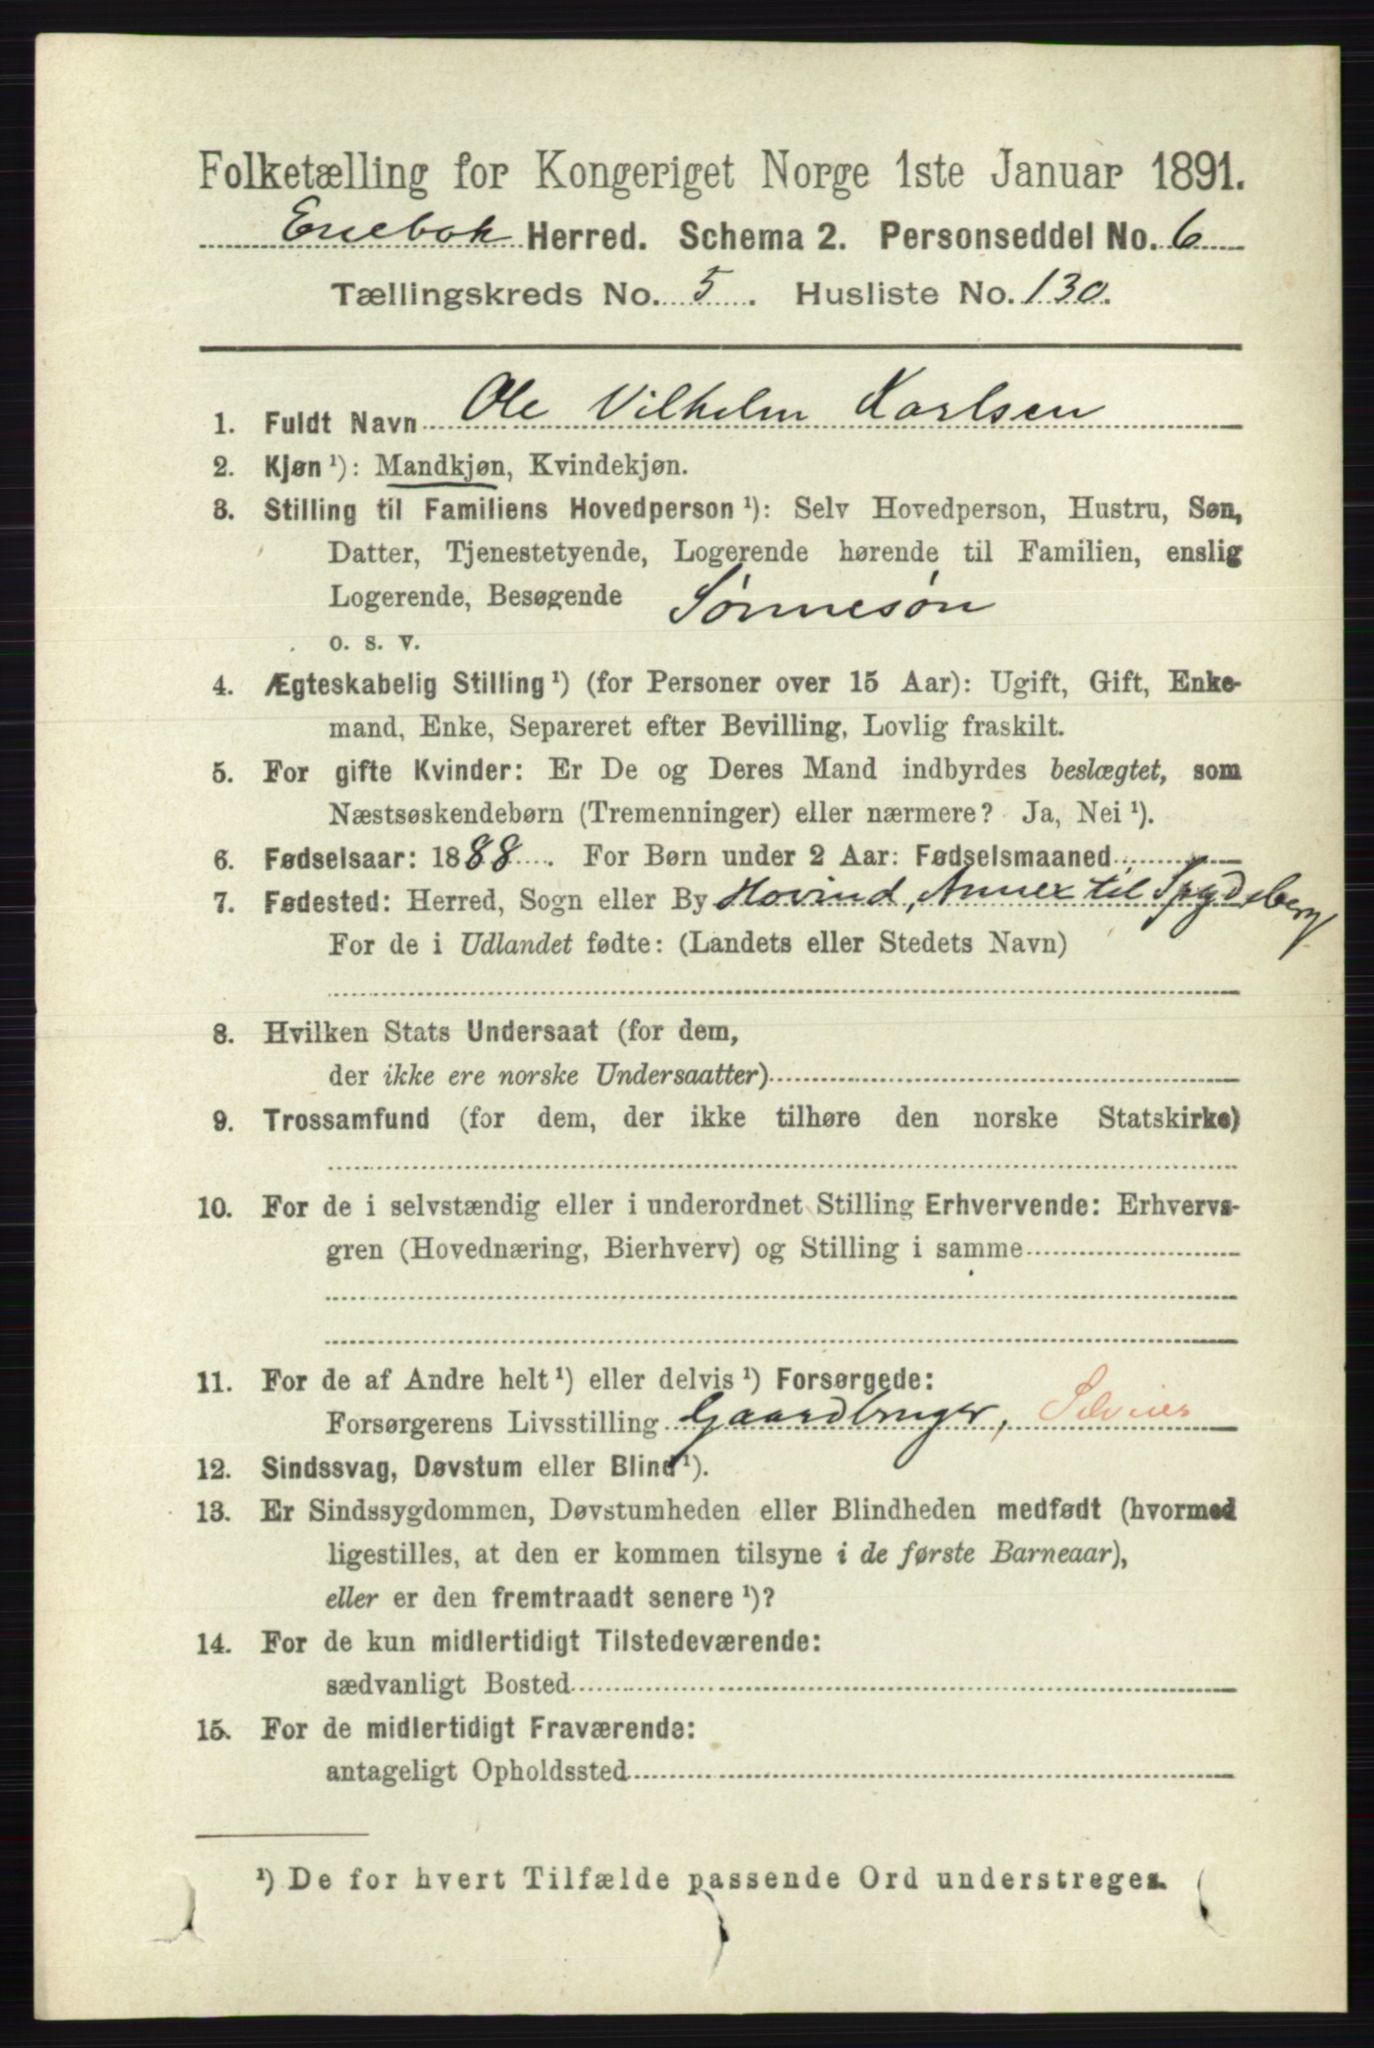 Folketælling for Kongeriget Norge 1ste Januar 1891.
Enebak Herred. Schema 2. Personseddel No. 6
Tællingskreds No. 5. Husliste No. 130.
1. Fuldt Navn Ole Vilhelm Karlsen
2. Kjøn ¹): Mandkjøn, Kvindekjøn.
3. Stilling til Familiens Hovedperson ¹): Selv Hovedperson, Hustru, Søn,
Datter, Tjenestetyende, Logerende hørende til Familien, enslig
Logerende, Besøgende Sønnesøn
o. s. v.
4. Ægteskabelig Stilling ¹) (for Personer over 15 Aar): Ugift, Gift, Enke-
mand, Enke, Separeret efter Bevilling, Lovlig fraskilt.
5. For gifte Kvinder: Er De og Deres Mand indbyrdes beslægtet, som
Næstsøskendebørn (Tremenninger) eller nærmere? Ja, Nei ¹).
6. Fødselsaar: 1888. For Børn under 2 Aar: Fødselsmaaned
7. Fødested: Herred, Sogn eller By Hovind, Annex til Spydeberg
For de i Udlandet fødte: (Landets eller Stedets Navn)
8. Hvilken Stats Undersaat (for dem,
der ikke ere norske Undersaatter)
9. Trossamfund (for dem, der ikke tilhøre den norske Statskirke)
10. For de i selvstændig eller i underordnet Stilling Erhvervende: Erhvervs-
gren (Hovednæring, Bierhverv) og Stilling i samme
11. For de af Andre helt ¹) eller delvis ¹) Forsørgede:
Forsørgerens Livsstilling Gaardbruger, Selveier
12. Sindssvag, Døvstum eller Blind ¹).
13. Er Sindssygdommen, Døvstumheden eller Blindheden medfødt (hvormed
ligestilles, at den er kommen tilsyne i de første Barneaar),
eller er den fremtraadt senere ¹)?
14. For de kun midlertidigt Tilstedeværende:
sædvanligt Bosted
15. For de midlertidigt Fraværende:
antageligt Opholdssted
¹) De for hvert Tilfælde passende Ord understreges.